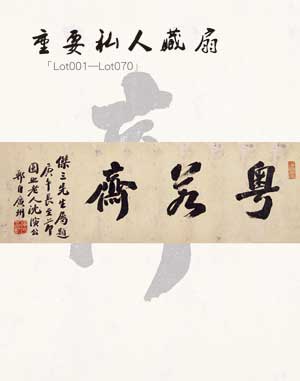 重要私人藏扇
「Lot001—Lot070」
粤若齋
傑三先生屬題
庚午長至節
園公老人沈演公
郵自廣州